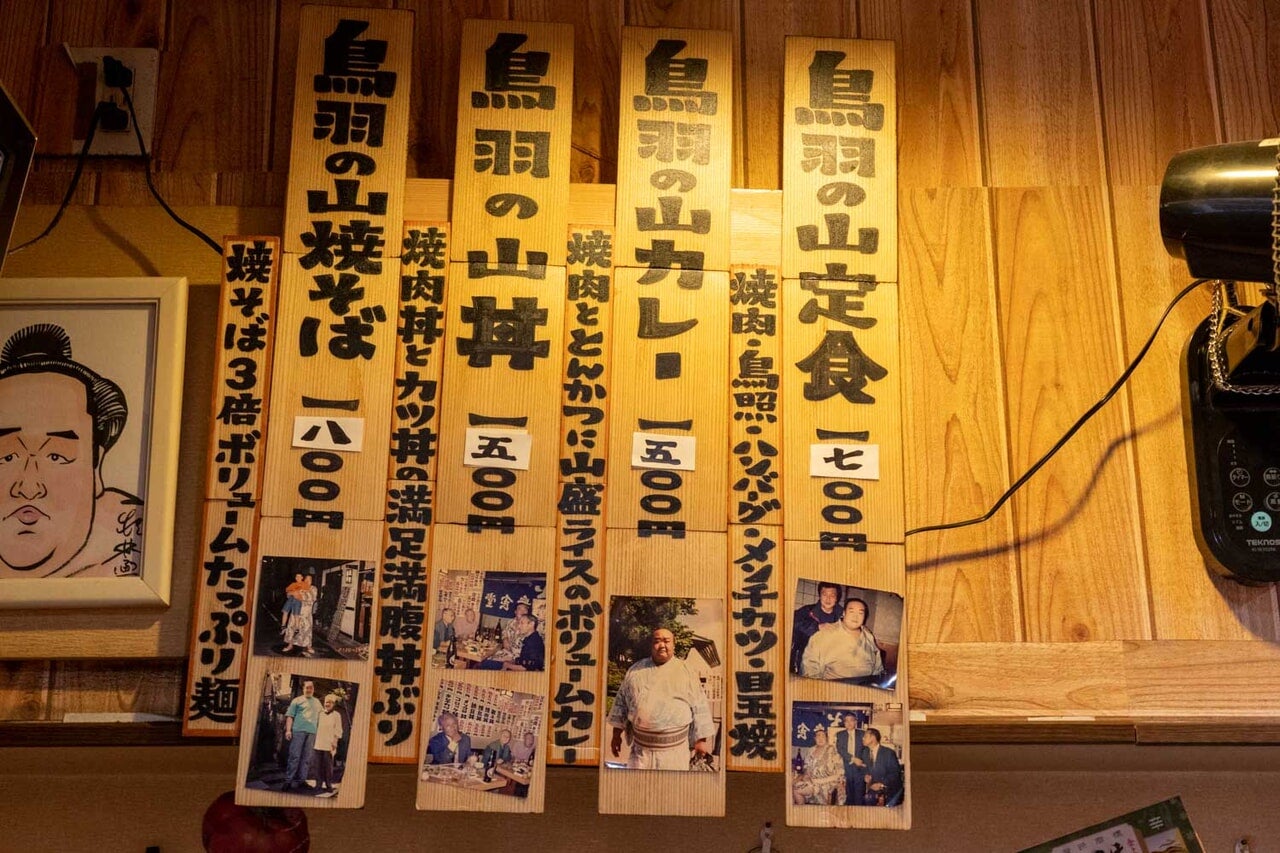 鳥羽の山定食 一七〇〇円
焼肉・鳥照・ハンバーグ・メンチカツ・目玉焼
鳥羽の山カレー 一五〇〇円
焼肉ととんかつに山盛ライスのボリュームカレー
鳥羽の山丼 一五〇〇円
焼肉丼とカツ丼の満足満腹丼ぶり
鳥羽の山焼そば 一八〇〇円
焼そば3倍ボリュームたっぷり麺
TEKNOS